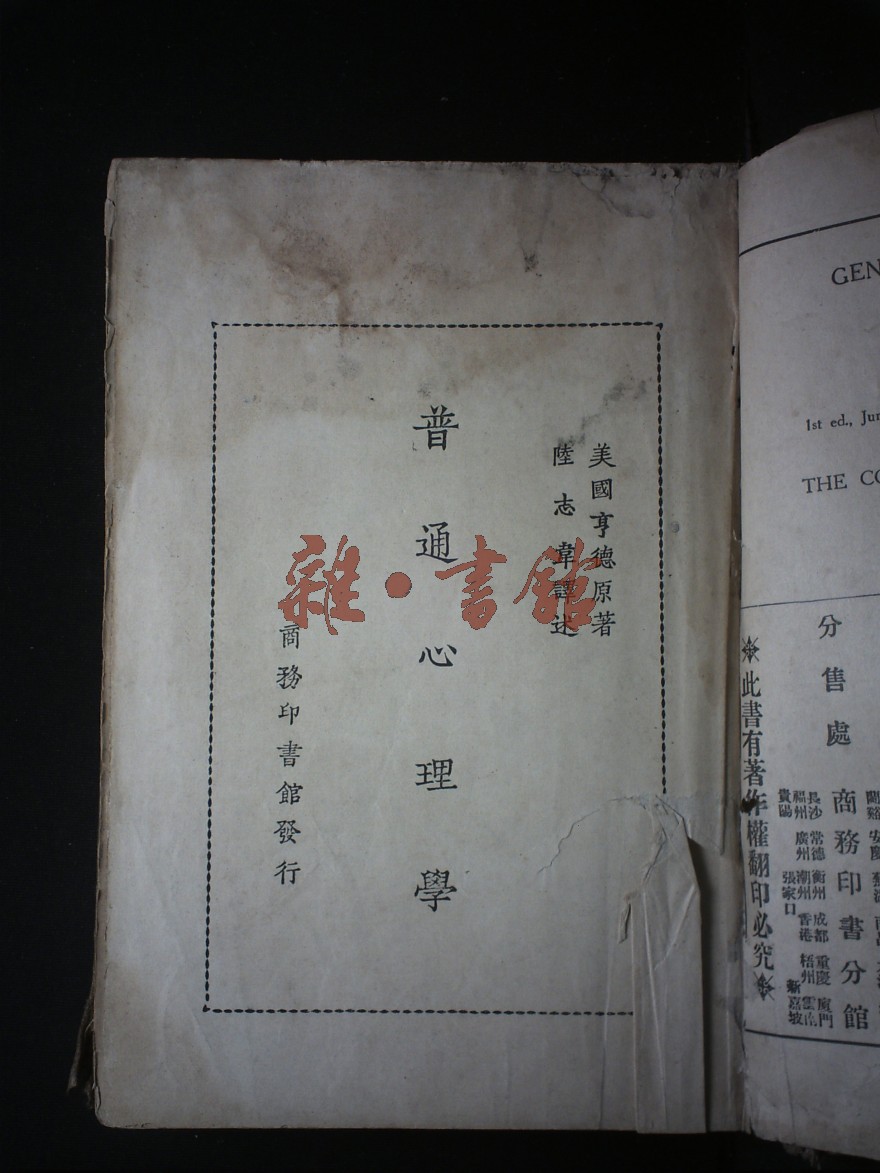 美國亨德原著
陸志韋譯述
普通心理學
商務印書館發行
雜·書館
GEN
1st ed., Jun
THE CO
分售處
商務印書分館
長沙 常德 衡州 成都 重慶 廈門
福州 廣州 潮州 香港 梧州 雲南
貴陽 張家口 新嘉坡
此書有著作權翻印必究